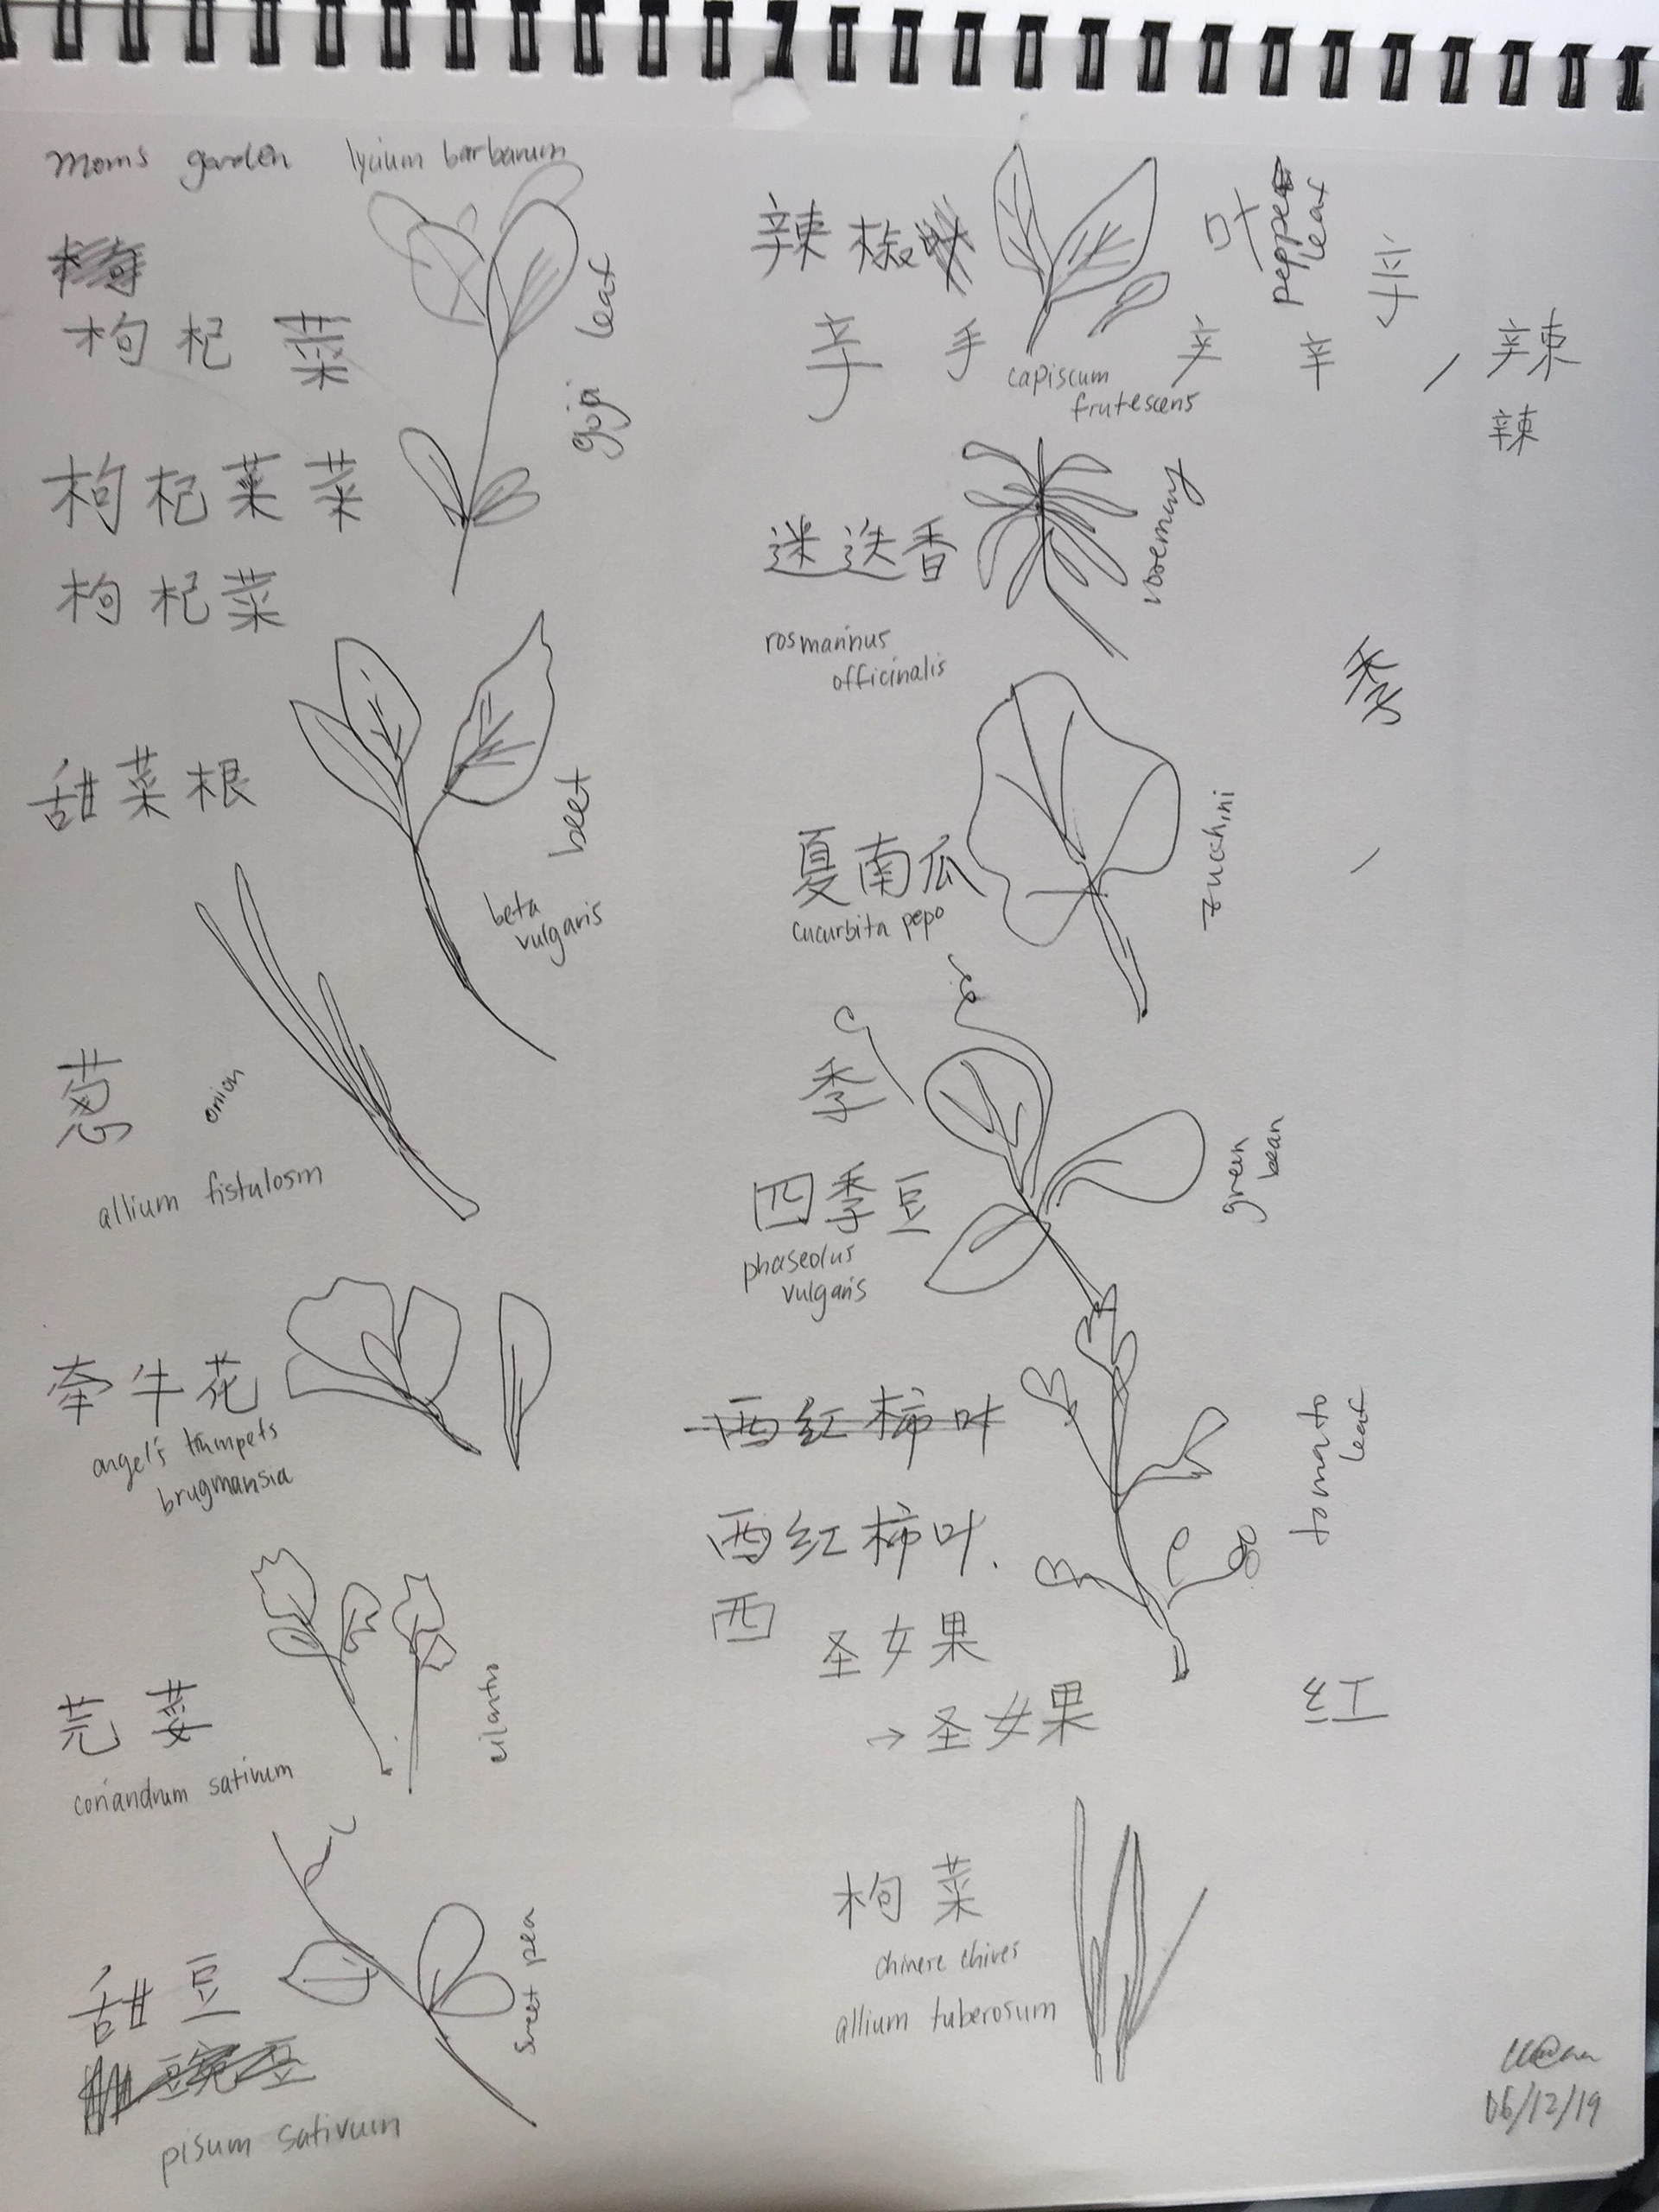 moms garden
lycium barbarum
枸杞菜
goji leaf
枸杞菜菜
枸杞菜
甜菜根
beet
beta
vulgaris
葱
onion
allium fistulosm
牵牛花
angel's trumpets
brugmansia
芫荽
cilantro
coriandrum sativum
甜豆
sweet pea
豌豆
pisum sativum
辣椒
叶
pepper
leaf
辛
手
capiscum
frutescens
辣
辣
迷迭香
rosemary
rosmarinus
officinalis
季
夏南瓜
zucchini
cucurbita pepo
季
四季豆
green
bean
phaseolus
vulgaris
西红柿叶
西红柿叶.
tomato
leaf
西
圣女果
→圣女果
红
枸菜
chinere chives
allium tuberosum
06/12/19